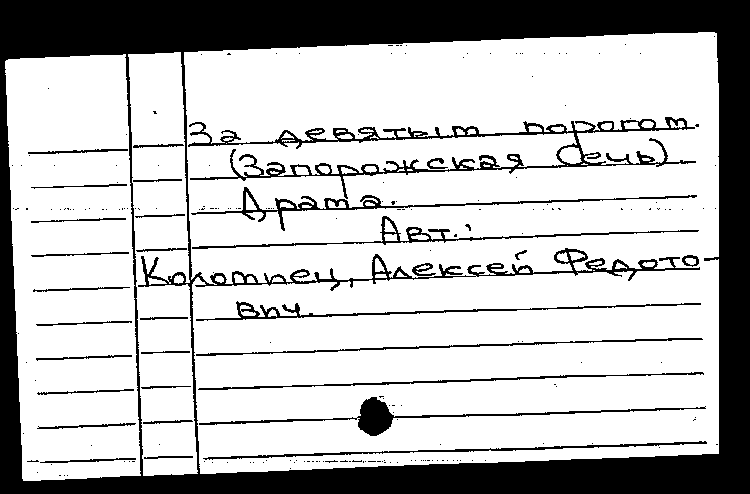 За девятым порогом.
(Запорожская Сечь).
Драма.
Авт.:
Коломиец, Алексей Федото-
вич.